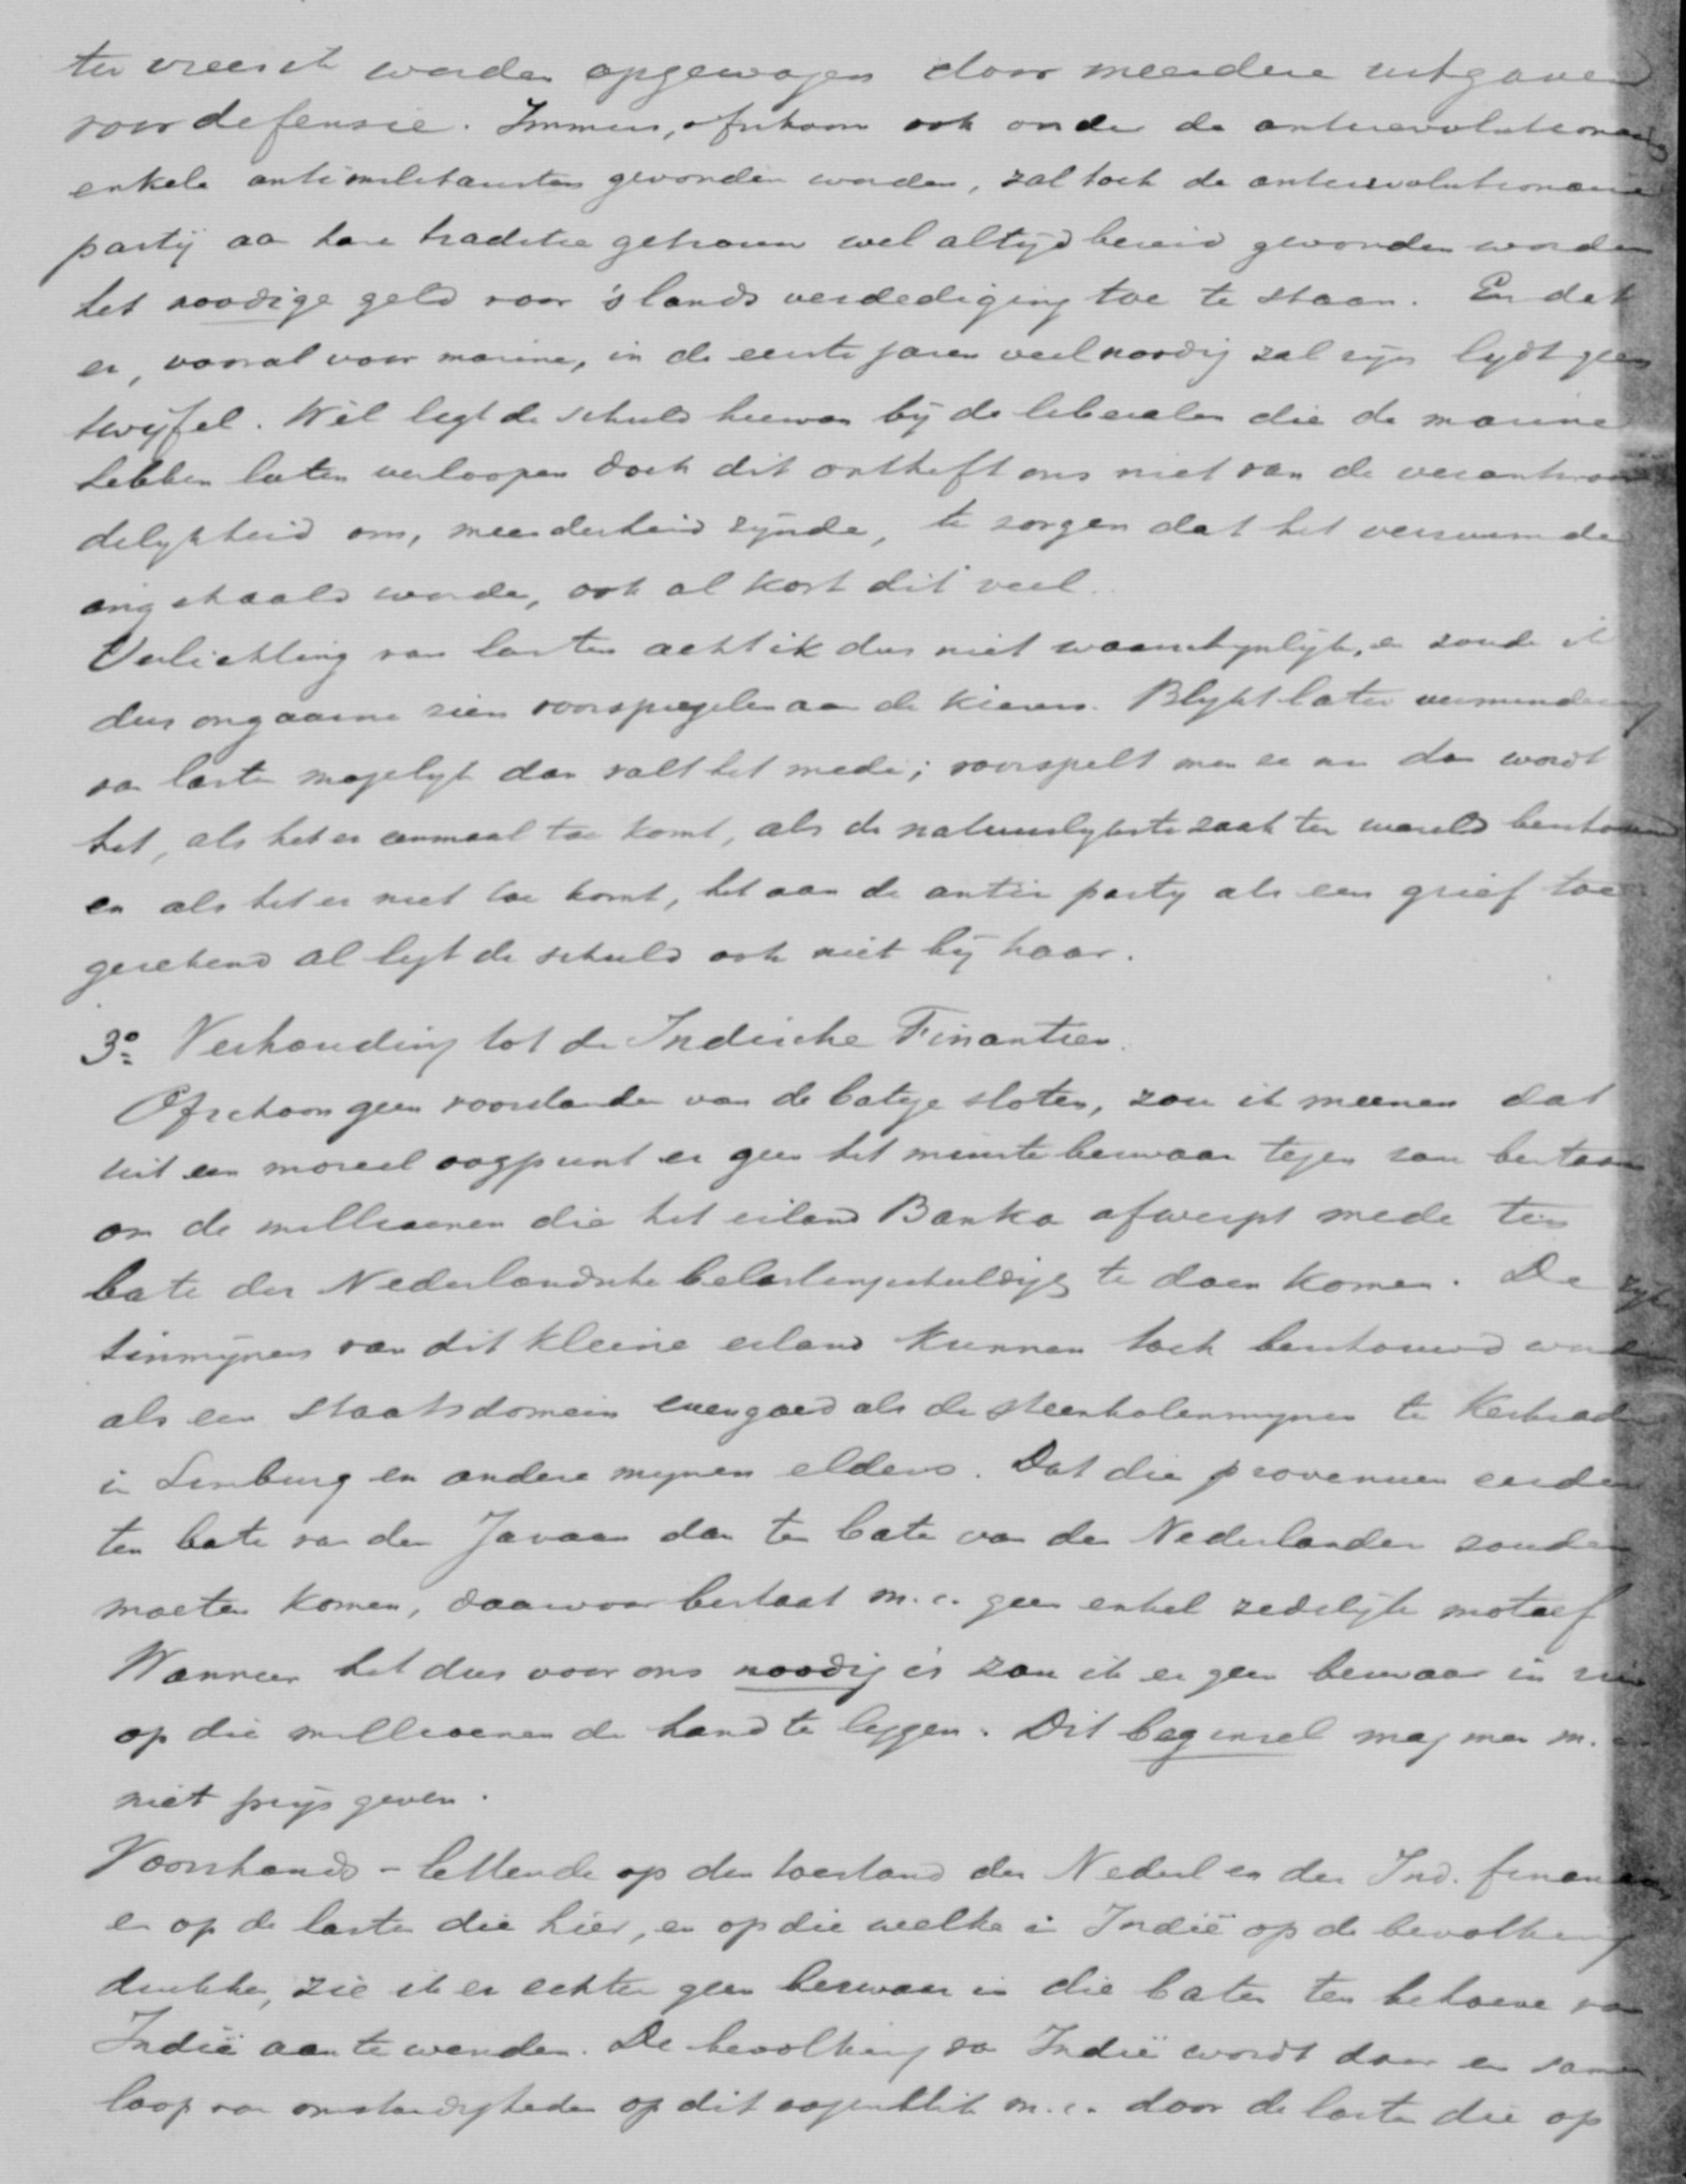 worden opgewogen door meerdere uitgaven
voor defensie. Immers, ofschoon ook onder de antirevolutionairen
enkele antimilitairisten gevonden worden, zal toch de antirevolutionaire
partij aan hare traditie getrouw wel altijd bereid gevonden worden
het noodige geld voor 's lands verdediging toe te staan. En dat
er, vooral voor marine, in de eerste jaren veel noodig zal zijn lydt geen
twijfel. Wèl ligt de schuld hiervan bij de liberalen die de marine
hebben laten verloopen doch dit ontheft ons niet van de verantwoor
delykheid om, meerderheid zijnde, te zorgen dat het verzuimde
ingehaald worde, ook al kost dit veel.
Verlichting van lasten acht ik dus niet waarschynlijk, en zoude ik
dus ongaarne zien voorspiegelen aan de kiezers. Blykt later vermindering
van lasten mogelyk dan valt het mede; voorspelt men ze nu dan wordt
het, als het er eenmaal toe komt, als de natuurlykste zaak ter wereld beschouwd
en als het er niet toe komt, het aan de antir party als een grief toe
gerekend al ligt de schuld ook niet bij haar.
3º Verhouding tot de Indische Finantien.
Ofschoon geen voorstander van de batige sloten, zou ik meenen dat
uit een moreel oogpunt er geen het minste bezwaar tegen zou bestaan
om de millioenen die het eiland Banka afwerpt mede ten
bate der Nederlandsche belastingschuldigen te doen komen. De ryke
tinmijnen van dit kleine eiland kunnen toch beschouwd worden
als een staatsdomein evengoed als de steenkolenmynen te Kerkrade
in Limburg en andere mynen elders. Dat die provenuen eerder
ten bate van den Javaan dan ten bate van den Nederlander zouden
moeten komen, daarvoor bestaat m.i. geen enkel zedelijk motief
Wanneer het dus voor ons noodig is zou ik er geen bezwaar in zien
op die millioenen de hand te leggen. Dit beginsel mag men m.i.
niet prijs geven.
Voorshands - lettende op den toestand der Nederl en der Ind. financiën
en op de lasten die hier, en op die welke in Indië op de bevolking
drukken, zie ik er echter geen bezwaar in die baten ten behoeve van
Indië aan te wenden. De bevolking van Indië wordt door een samen
loop van omstandigheden op dit oogenblik m.i. door de lasten die op